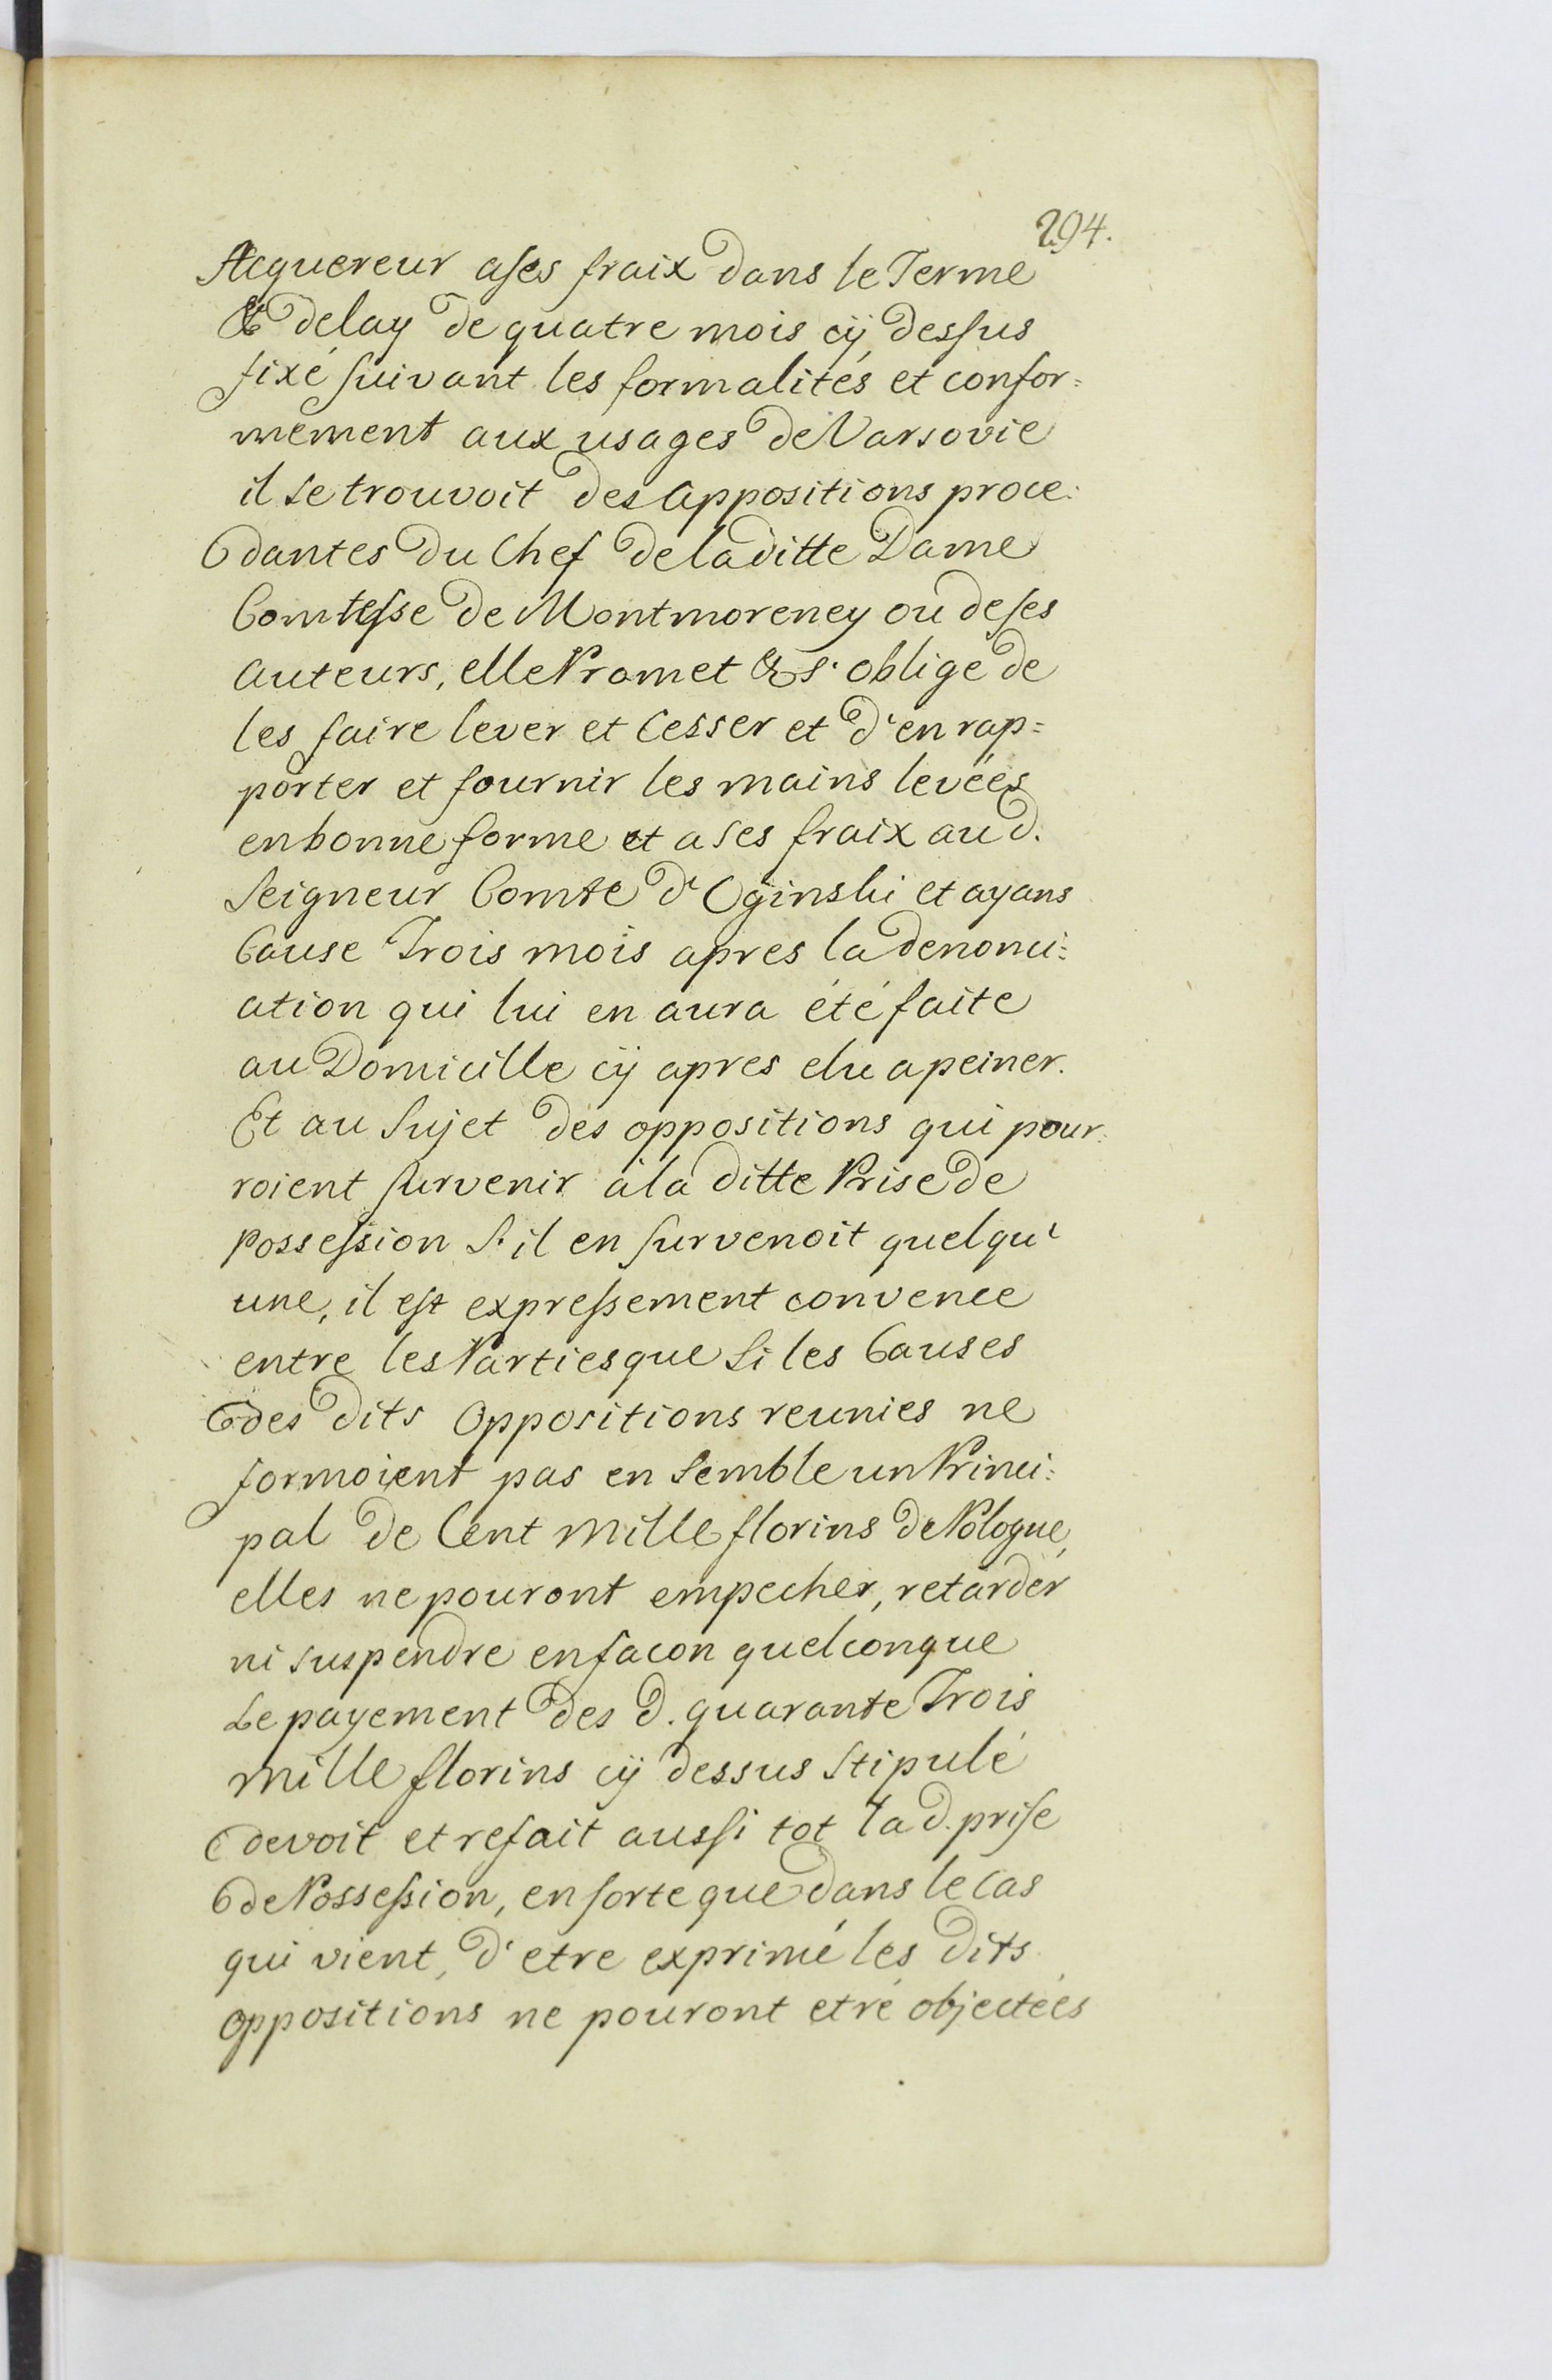 294.
Acquereur ases fraix dans le Terme
& delay de quatre mois cÿ dessus
fixé suivant les formalités et confor=
mement aux usages de Varsovie
il se trouvoit des appositions proce=
dantes du Chef de laditte Dame
Comtesse de Montmoreney ou de ses
auteurs, elle Promet & s'oblige de
les faire lever et Cesser et d'en rap=
porter et fournir les mains levées
en bonne forme et a ses fraix aud.
Seigneur Comte d'Oginski et ayans
Cause Trois mois apres la denonci=
ation qui lui en aura été faite
au Domicille cÿ apres elu a peiner.
Et au Sujet des oppositions qui pour=
roient survenir à la ditte Prise de
possession S'il en survenoit quelqu'
une, il est expressement convenee
entre les Parties que Si les Causes
des dits Oppositions reunies ne
formoient pas en Semble un Princi=
pal de Cent mille florins de Pologne,
elles ne pouront empecher, retarder
ni suspendre en facon quelconque
Le payement des d. quarante Trois
mille florins cÿ dessus Stipulé
devoit et refait aussi tot lad. prise
de Possession, en sorte que dans le Cas
qui vient, d'etre exprimé les dits
oppositions ne pouront etre objectées